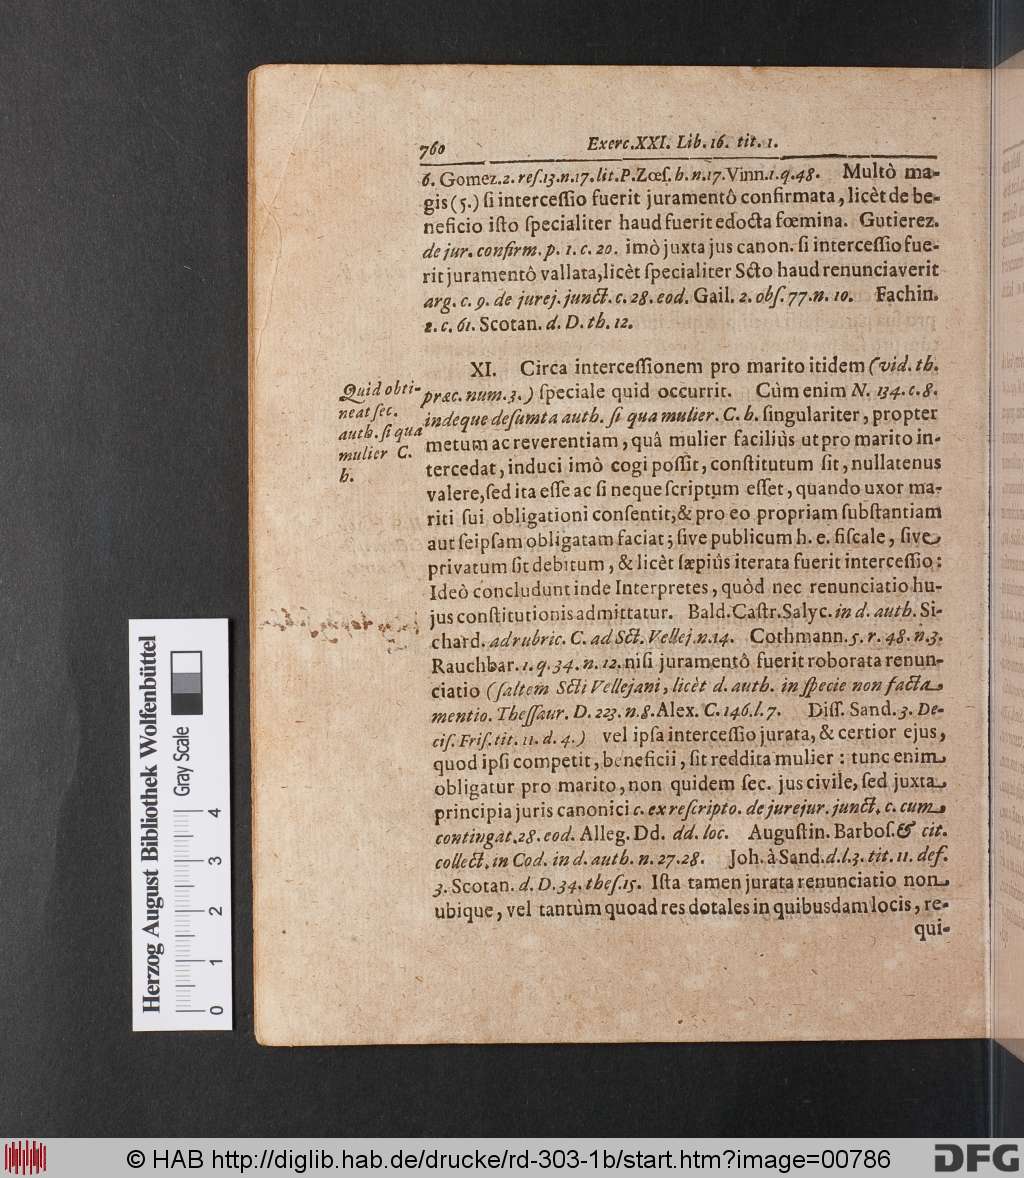 760 Exerc. XXI. Lib. 16. tit. 1.
6. Gomez. 2. reſ. 13. n. 17. lit. P. Zœſ. h. n. 17. Vinn. 1. q. 48. Multò ma-
gis (5.) ſi interceſſio fuerit juramentô confirmata, licèt de be-
neficio iſto ſpecialiter haud fuerit edocta fœmina. Gutierez.
de jur. confirm. p. 1. c. 20. imò juxta jus canon. ſi interceſſio fue-
rit juramentô vallata, licèt ſpecialiter Scto haud renunciaverit
arg. c. 9. de jurej. junct. c. 28. eod. Gail. 2. obſ. 77. n. 10. Fachin.
2. c. 61. Scotan. d. D. th. 12.
XI. Circa interceſſionem pro marito itidem (vid. th.
præc. num. 3.) ſpeciale quid occurrit. Cùm enim N. 134. c. 8.
indeque deſumta auth. ſi qua mulier. C. h. ſingulariter, propter
metum ac reverentiam, quâ mulier faciliùs ut pro marito in-
tercedat, induci imò cogi poſſit, conſtitutum ſit, nullatenus
valere, ſed ita eſſe ac ſi neque ſcriptum eſſet, quando uxor ma-
riti ſui obligationi conſentit, & pro eo propriam ſubſtantiam
aut ſeipſam obligatam faciat; ſive publicum h. e. fiſcale, ſive
privatum ſit debitum, & licèt ſæpiùs iterata fuerit interceſſio:
Ideò concludunt inde Interpretes, quòd nec renunciatio hu-
jus conſtitutionis admittatur. Bald. Caſtr. Salyc. in d. auth. Si-
chard. ad rubric. C. ad Sct. Vellej. n. 14. Cothmann. 5. r. 48. n. 3.
Rauchbar. 1. q. 34. n. 12. niſi juramentô fuerit roborata renun-
ciatio (ſaltem Scti Vellejani, licèt d. auth. in ſpecie non facta
mentio. Theſſaur. D. 223. n. 8. Alex. C. 146. l. 7. Diſſ. Sand. 3. De-
ciſ. Friſ. tit. 11. d. 4.) vel ipſa interceſſio jurata, & certior ejus,
quod ipſi competit, beneficii, ſit reddita mulier: tunc enim
obligatur pro marito, non quidem ſec. jus civile, ſed juxta
principia juris canonici c. ex reſcripto. de jurejur. junct. c. cum
contingat. 28. eod. Alleg. Dd. dd. loc. Auguſtin. Barboſ. & cit.
collect. in Cod. in d. auth. n. 27. 28. Joh. à Sand. d. l. 3. tit. 11. def.
3. Scotan. d. D. 34. theſ. 15. Iſta tamen jurata renunciatio non
ubique, vel tantùm quoad res dotales in quibusdam locis, re-
qui-
Quid obti-
neat ſec.
auth. ſi qua
mulier C.
h.
Herzog August Bibliothek Wolfenbüttel
Gray Scale
0 1 2 3 4
© HAB http://diglib.hab.de/drucke/rd-303-1b/start.htm?image=00786
DFG